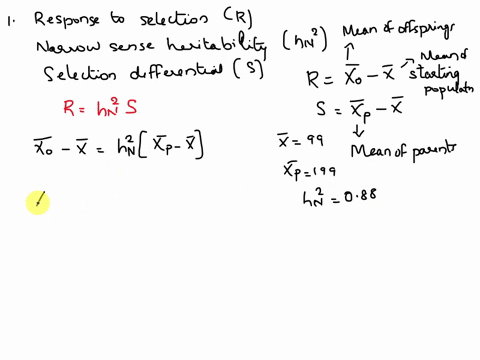 1. Response to selection (R)
Narrow sense heritability (hN²)
Selection differential (S)
R = hN² S
X̄o - x̄ = hN² [X̄p - x̄]
Mean of offsprings
R = X̄o - x̄
Mean of
starting
populatn
S = X̄p - X̄
Mean of parents
x̄ = 99
X̄p = 199
hN² = 0.88